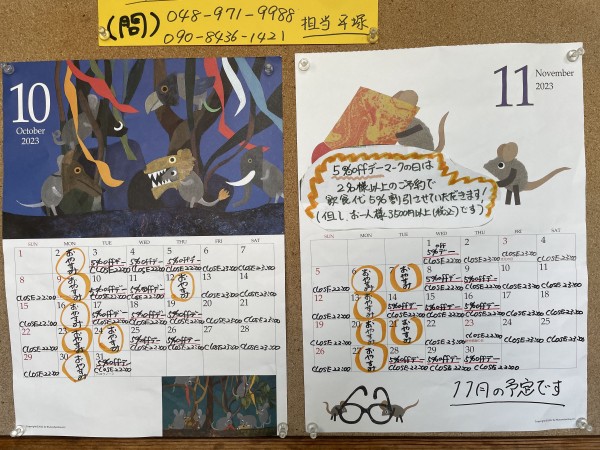 (問) 048-971-9988
090-8436-1421 担当 平塚
10
October
2023
SUN MON TUE WED THU FRI SAT
1 2 3 4 5 6 7
おやすみ 5%offデー 5%offデー 5%offデー
CLOSE22:00 CLOSE22:00 CLOSE22:00 CLOSE22:00 CLOSE23:00 CLOSE23:00
8 9 10 11 12 13 14
おやすみ 5%offデー 5%offデー おやすみ
CLOSE22:00 CLOSE22:00 CLOSE22:00 CLOSE23:00 CLOSE23:00
15 16 17 18 19 20 21
おやすみ 5%offデー 5%offデー 5%offデー
CLOSE22:00 CLOSE22:00 CLOSE22:00 CLOSE22:00 CLOSE23:00 CLOSE23:00
22 23 24 25 26 27 28
おやすみ おやすみ 5%offデー 5%offデー
CLOSE22:00 CLOSE22:00 CLOSE22:00 CLOSE23:00 CLOSE23:00
29 30 31
おやすみ 5%offデー
CLOSE22:00 CLOSE22:00
11
November
2023
5%offデーマークの日は
2名様以上のご予約で
飲食代5%割引させていただきます!
(但し、お一人様3500円以上(税込)です)
SUN MON TUE WED THU FRI SAT
1 2 3 4
5%デー
CLOSE22:00 CLOSE22:00 CLOSE23:00 CLOSE23:00
5 6 7 8 9 10 11
おやすみ おやすみ 5%offデー 5%offデー
CLOSE22:00 CLOSE22:00 CLOSE22:00 CLOSE23:00 CLOSE23:00
12 13 14 15 16 17 18
おやすみ 5%offデー 5%offデー 5%offデー
CLOSE22:00 CLOSE22:00 CLOSE22:00 CLOSE22:00 CLOSE23:00 CLOSE23:00
19 20 21 22 23 24 25
おやすみ おやすみ 5%offデー
CLOSE22:00 CLOSE22:00 CLOSE22:00 CLOSE23:00 CLOSE23:00
26 27 28 29 30
おやすみ 5%offデー 5%offデー 5%offデー
CLOSE22:00 CLOSE22:00 CLOSE22:00 CLOSE22:00
11月の予定です